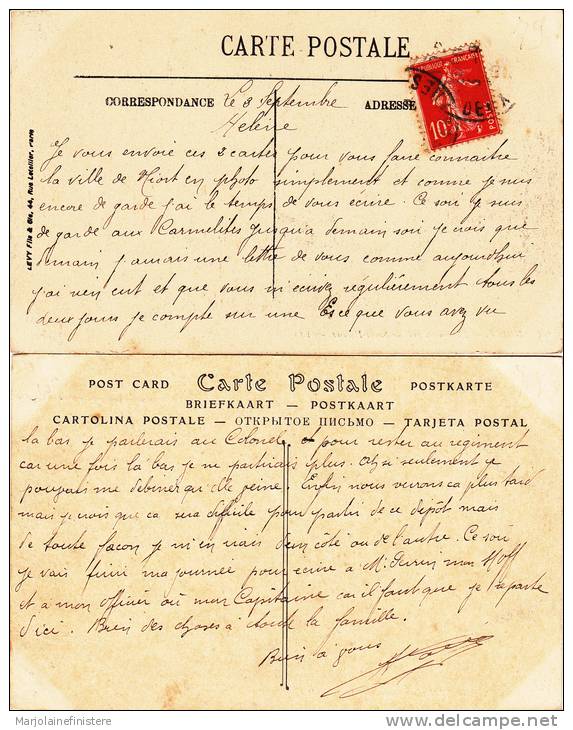 CARTE POSTALE
CORRESPONDANCE
ADRESSE
REPUBLIQUE FRANCAISE
10
POSTES
LEVY Fils & Cie, 44, Rue Letellier, Paris
Le 3 Septembre
Helene
Je vous envoie ces 2 cartes pour vous faire connaitre
la ville de Niort en photo simplement et comme je suis
encore de garde j'ai le temps de vous ecrire. Ce soir je suis
de garde aux Carmelites jusqu'a demain soir je crois que
demain j'aurais une lettre de vous comme aujourd'hui
j'ai rien eut et que vous m'ecrivez régulièrement tous les
deux jours je compte sur une Esce que vous avez vu
POST CARD Carte Postale POSTKARTE
BRIEFKAART — POSTKAART
CARTOLINA POSTALE — ОТКРЫТОЕ ПИСЬМО — TARJETA POSTAL
la bas je parlerais au Colonel pour rester au regiment
car une fois la bas je ne partirais plus. Ah si seulement je
pouvais me debiner qu'elle peine. Enfin nous verrons ca plus tard
mais je crois que ca sera difficile pour partir de ce dépôt mais
de toute facon je m'en irais d'un côté ou de l'autre. Ce soir
je vais finir ma journée pour ecrire a Mr
et a mon officier où mon Capitaine car il faut que je parte
d'ici. Bien des choses a toute la famille.
Bien a vous
Marjolainefinistere
delcampe.net